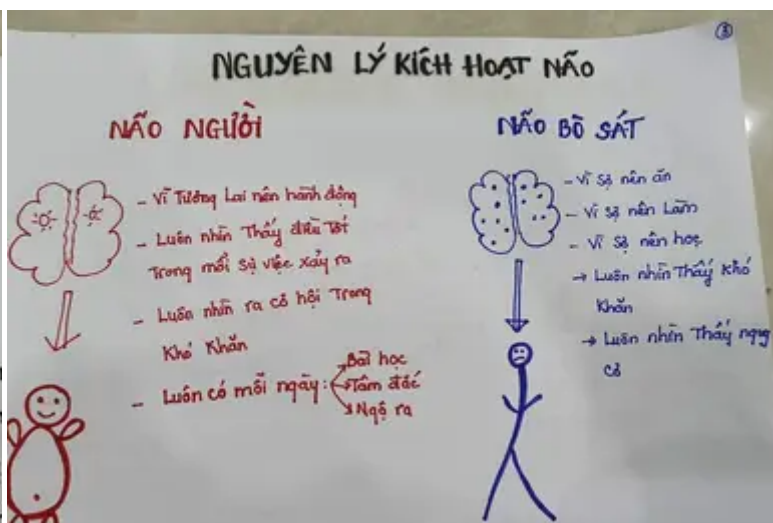 ③
NGUYÊN LÝ KÍCH HOẠT NÃO
NÃO NGƯỜI
- Vì Tương Lai nên hành động
- Luôn nhìn Thấy điều Tốt
Trong mỗi sự việc xảy ra
- Luôn nhìn ra cơ hội Trong
Khó Khăn
- Luôn có mỗi ngày:
Bài học
Tâm đắc
Ngộ ra
NÃO BÒ SÁT
- Vì sợ nên ăn
- Vì sợ nên Làm
- Vì sợ nên học
→ Luôn nhìn Thấy Khó
Khăn
→ Luôn nhìn Thấy nguy
cơ